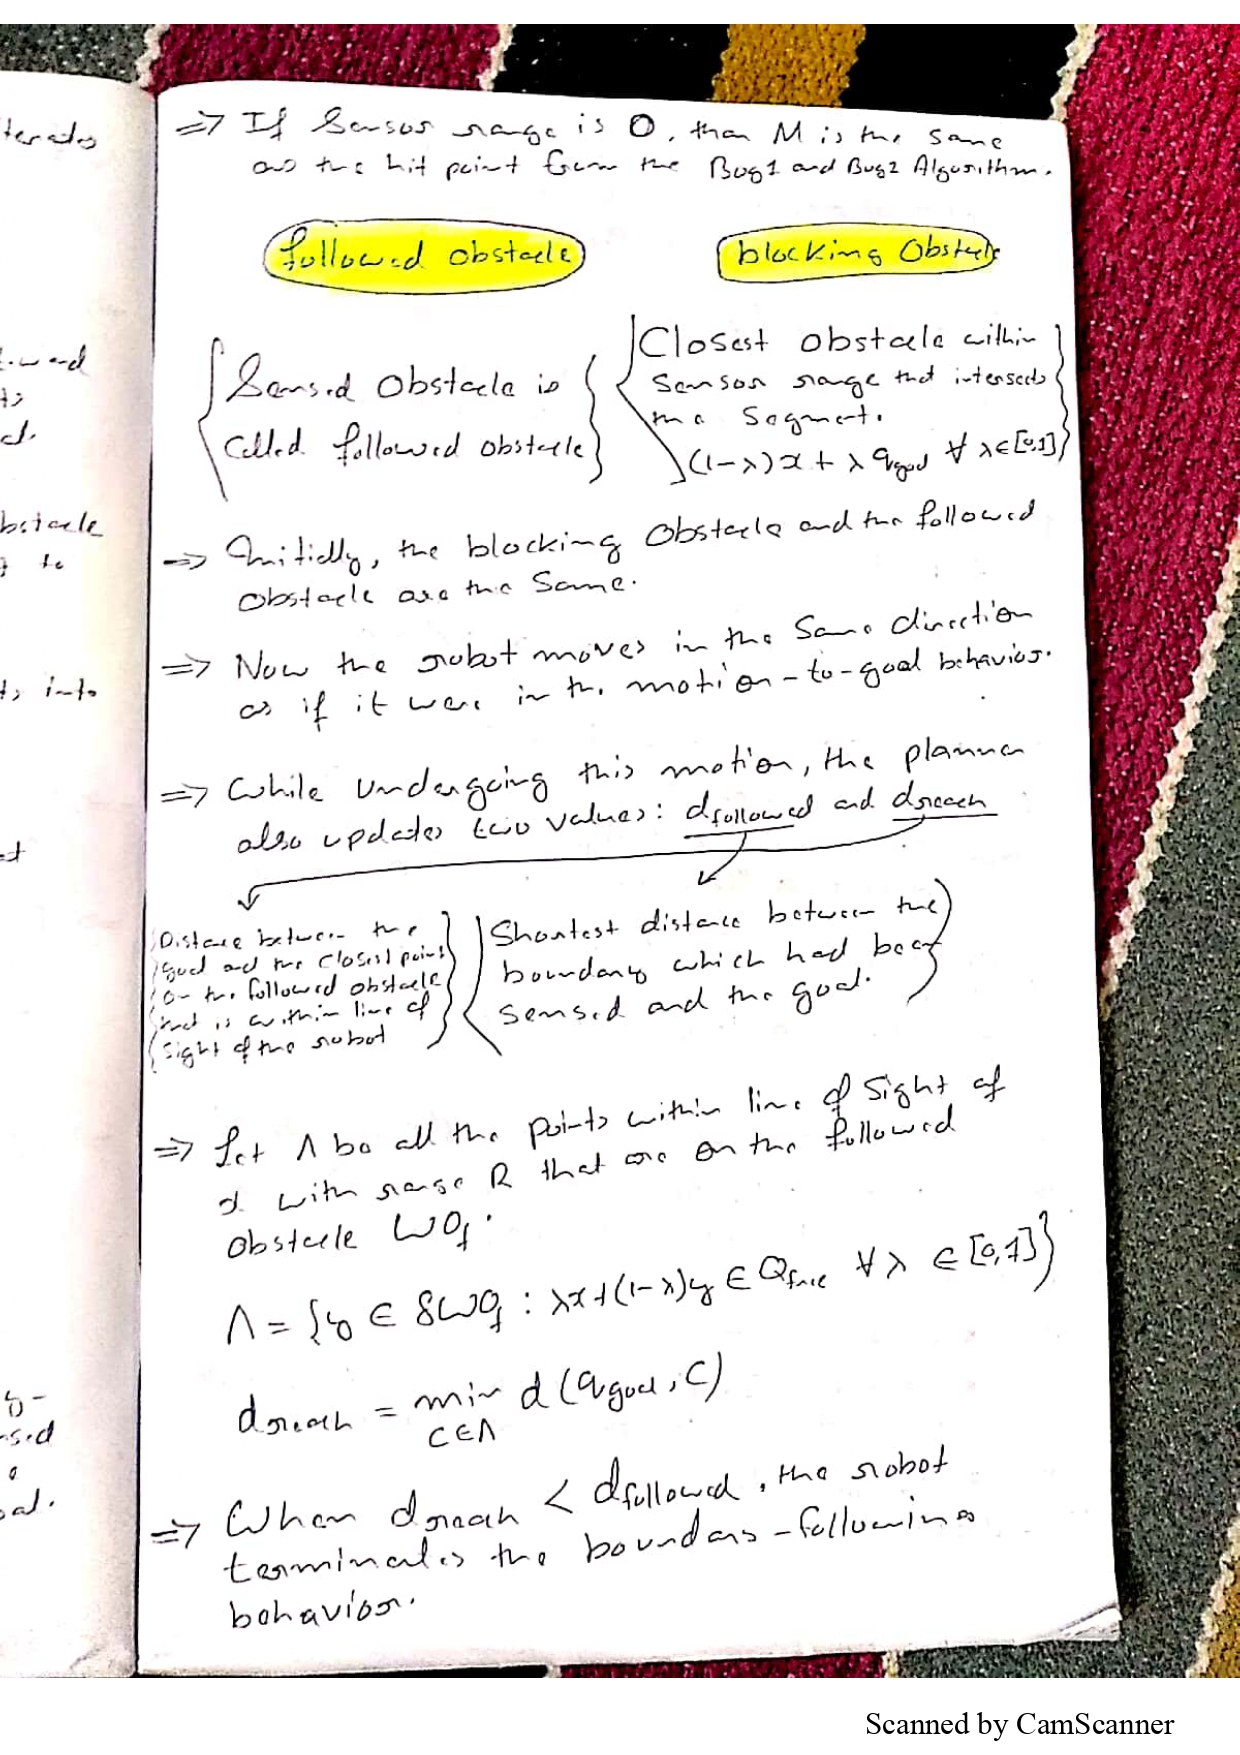 ⇒ If Sensor range is 0, than M is the same
as the hit point from the Bug1 and Bug2 Algorithm.
followed obstacle
blocking Obstacle
Sensed Obstacle is
called followed obstacle
Closest obstacle within
Sensor range that intersects
the Segment.
(1-λ)x + λ qgoal ∀ λ∈[0,1]
⇒ Initially, the blocking Obstacle and the followed
Obstacle are the Same.
⇒ Now the robot moves in the Same direction
as if it were in the motion-to-goal behavior.
⇒ While undergoing this motion, the planner
also updates two values: dfollowed and dreach
Distance between the
goal and the closest point
on the followed obstacle
that is within line of
Sight of the robot
Shortest distance between the
boundary which had been
sensed and the goal.
⇒ Let Λ be all the points within line of Sight of
x with range R that are on the followed
Obstacle WOf.
Λ = {y ∈ δWOf : λx+(1-λ)y ∈ Qfree ∀ λ ∈ [0,1]}
dreach = min d(qgoal, C)
C∈Λ
⇒ When dreach < dfollowed, the robot
terminates the boundary-following
behavior.
Scanned by CamScanner